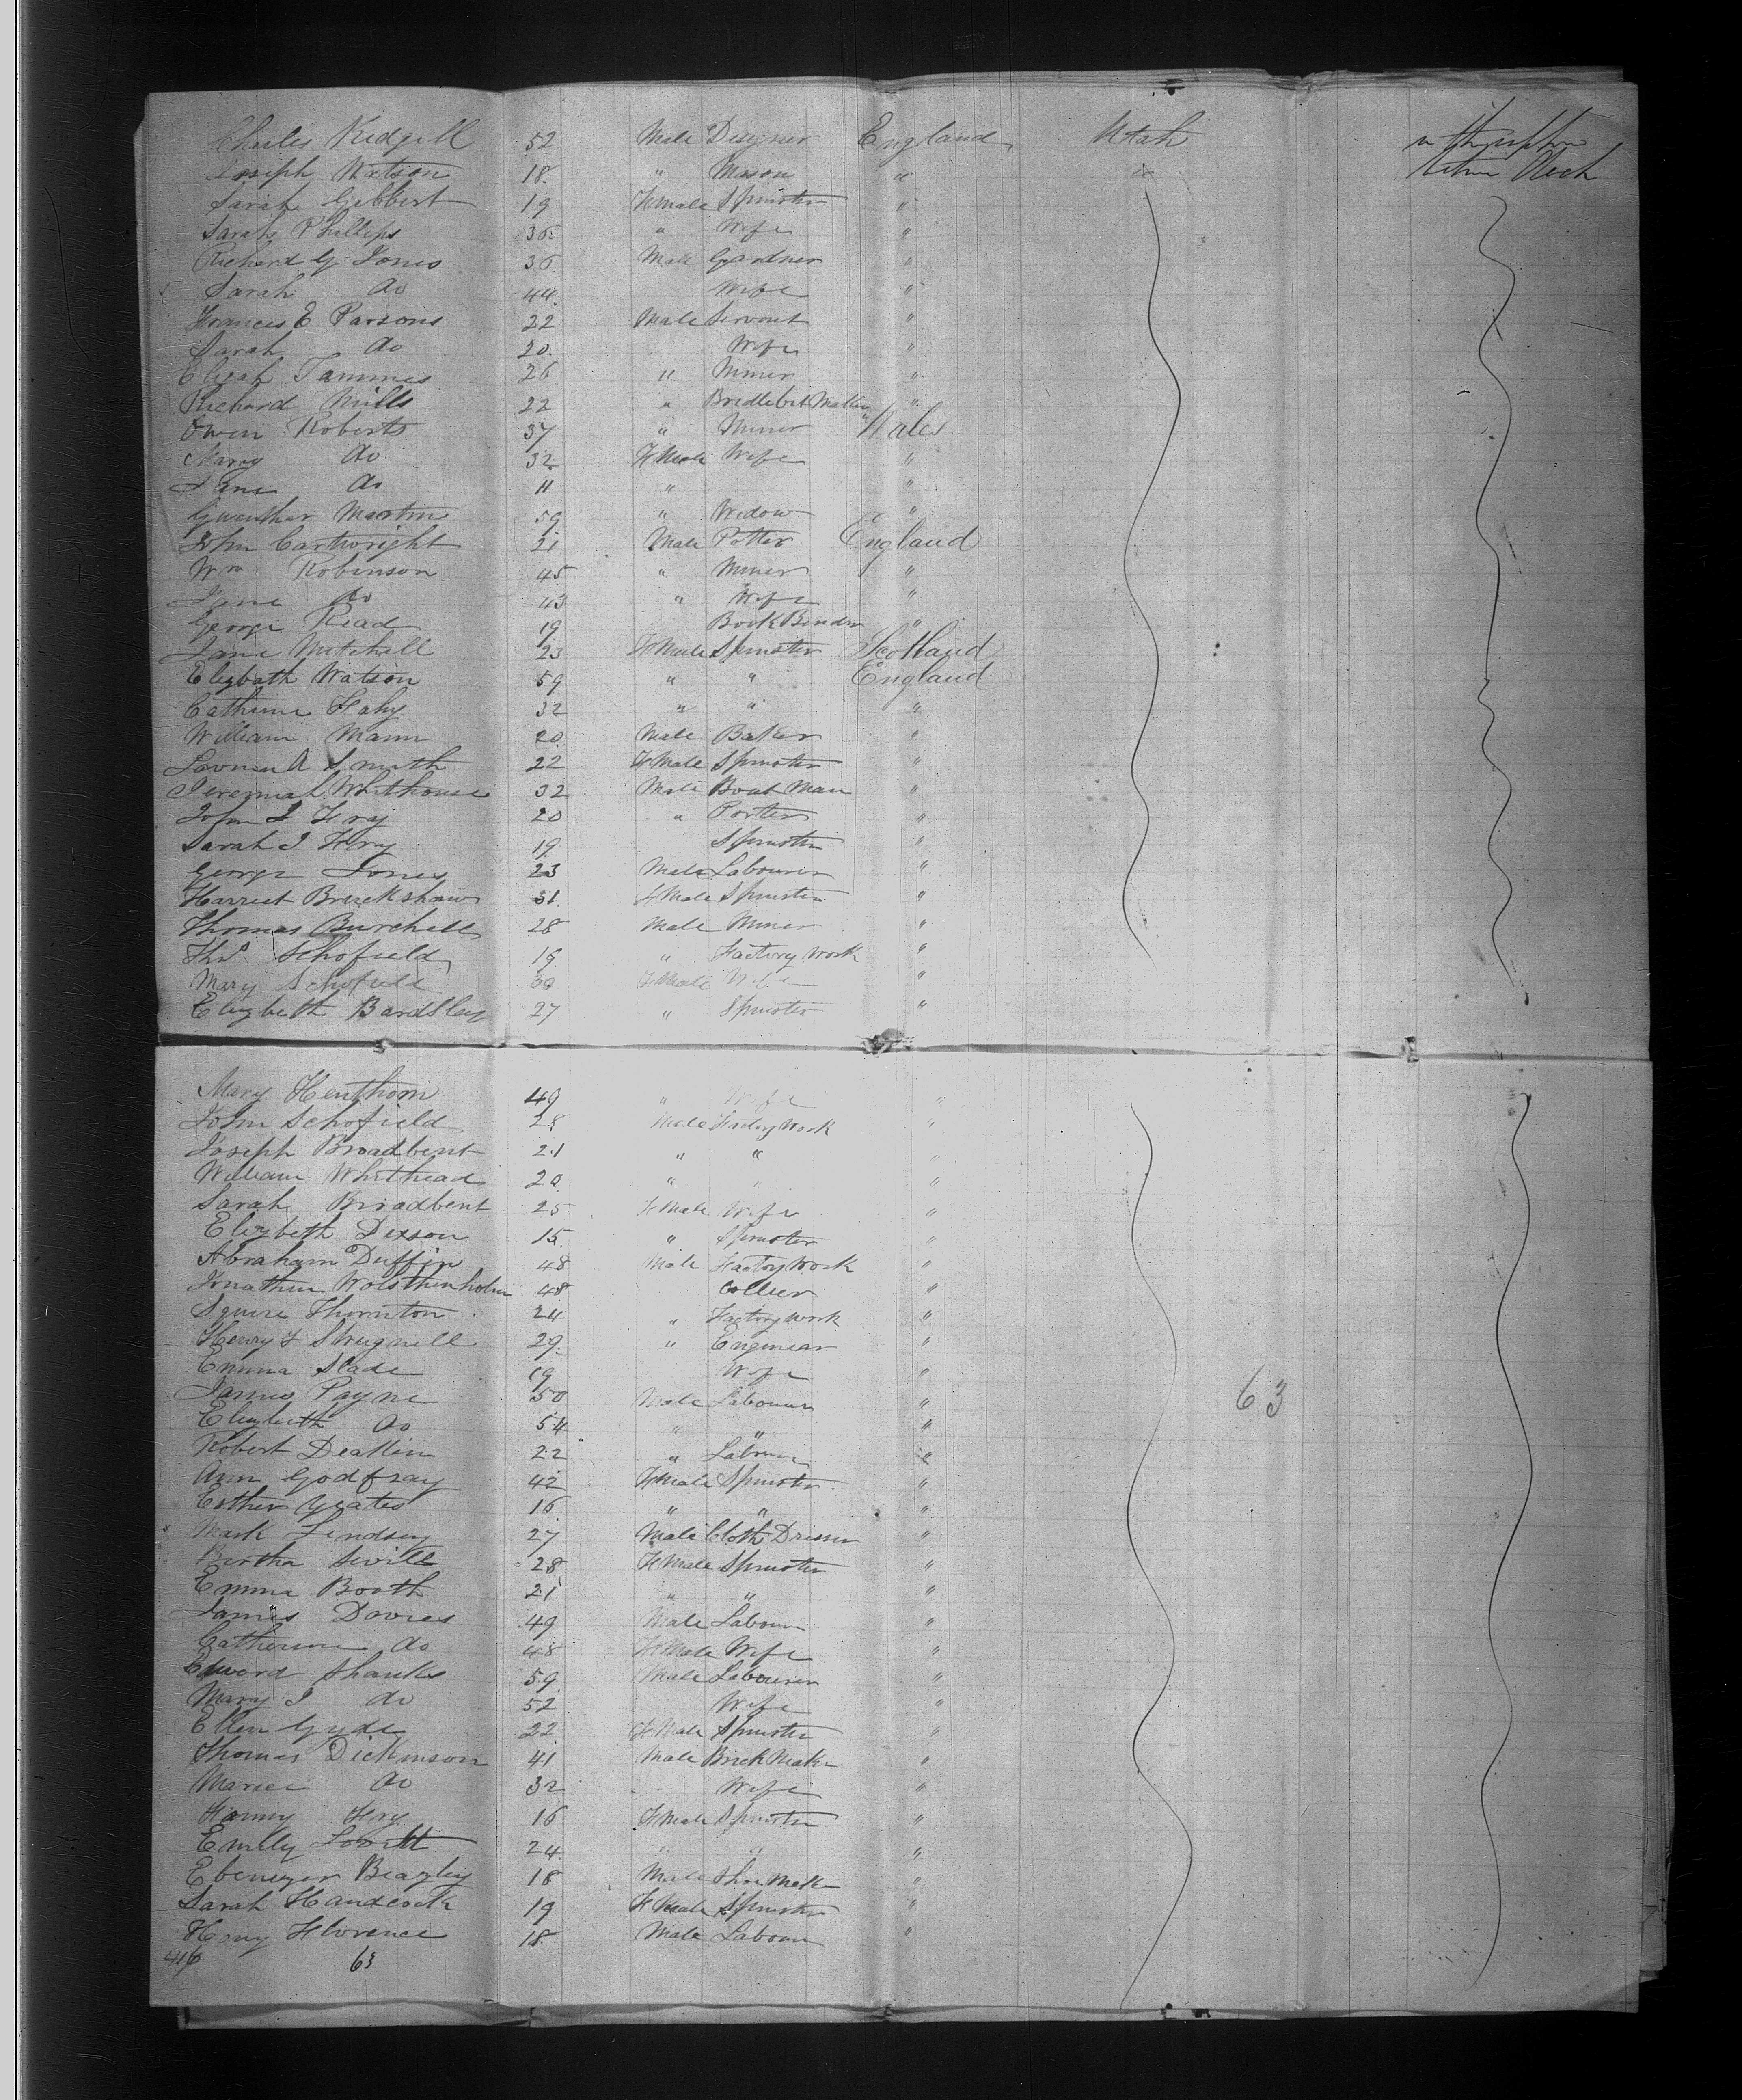 Charles Kidgell 52 Male Designer England Utah in the upper
Joseph Watson 18 " Mason " " between Deck
Sarah Gibbert 19 Female Spinster "
Sarah Phillips 36 " Wife "
Richard G Jones 36 Male Gardner "
Sarah do 44 Wife "
Frances E Parsons 22 Male Servant "
Sarah do 20 Wife "
Elijah Tammes 26 " Miner "
Richard Mills 22 " Bridle bit Maker "
Owen Roberts 37 " Miner Wales
Mary do 32 Female Wife "
Jane do 11 " "
Gwenthar Martin 59 " Widow "
John Cartwright 21 Male Potter England
Wm Robinson 45 " Miner "
Jane do 43 " Wife "
George Read 19 Book Binder "
Jane Mitchell 23 Female Spinster Scotland
Elizbath Watson 59 " " England
Catherine Fahy 32 " " "
William Mann 20 Male Baker "
Lovinia A Smith 22 Female Spinster "
Jeremiah Whithouse 32 Male Boat Man "
John J Fry 20 " Porter "
Sarah J Fry 19 Spinster "
George Jones 23 Male Labourer "
Harriet Bruckshaw 31 Female Spinster "
Thomas Burchell 28 Male Miner "
Thos Schofield 19 " Factory Work "
Mary Schofield 30 Female Wife
Elizbeth Bardsley 27 " Spinster "
Mary Henthorn 49 " Wife "
John Schofield 28 Male Factory Work "
Joseph Broadbent 21 " " "
William Whithead 20 " " "
Sarah Broadbent 25 Female Wife "
Elizbeth Dixson 15 " Spinster "
Abraham Duffin 48 Male Factory Work "
Jonathen Wolsthenholm 48 Collier "
Squire Thornton 24 " Factory work "
Henry F Strugnell 29 " Enginear "
Emma Slade 19 Wife "
James Payne 50 Male Labourer " 63
Elizbeth do 54 " " "
Robert Deakin 22 " Labour "
Ann Godfray 42 Female Spinster "
Esther Yeates 16 " " "
Mark Lindsey 27 Male Cloth Dresser "
Bertha Sevill 28 Female Spinster "
Emma Booth 21 " " "
James Davies 49 Male Labour "
Catherine do 48 Female Wife "
Edward Shanks 59 Male Labourer "
Mary J do 52 Wife "
Ellen Gyde 22 Female Spinster "
Thomas Dickinson 41 Male Brick Maker "
Maria do 32 Wife "
Fanny Fry 16 Female Spinster "
Emily Lovett 24 " " "
Ebenezer Beazley 18 Male Shoe Maker "
Sarah Handcock 19 Female Spinster "
Henry Florence 18 Male Labour "
416 63